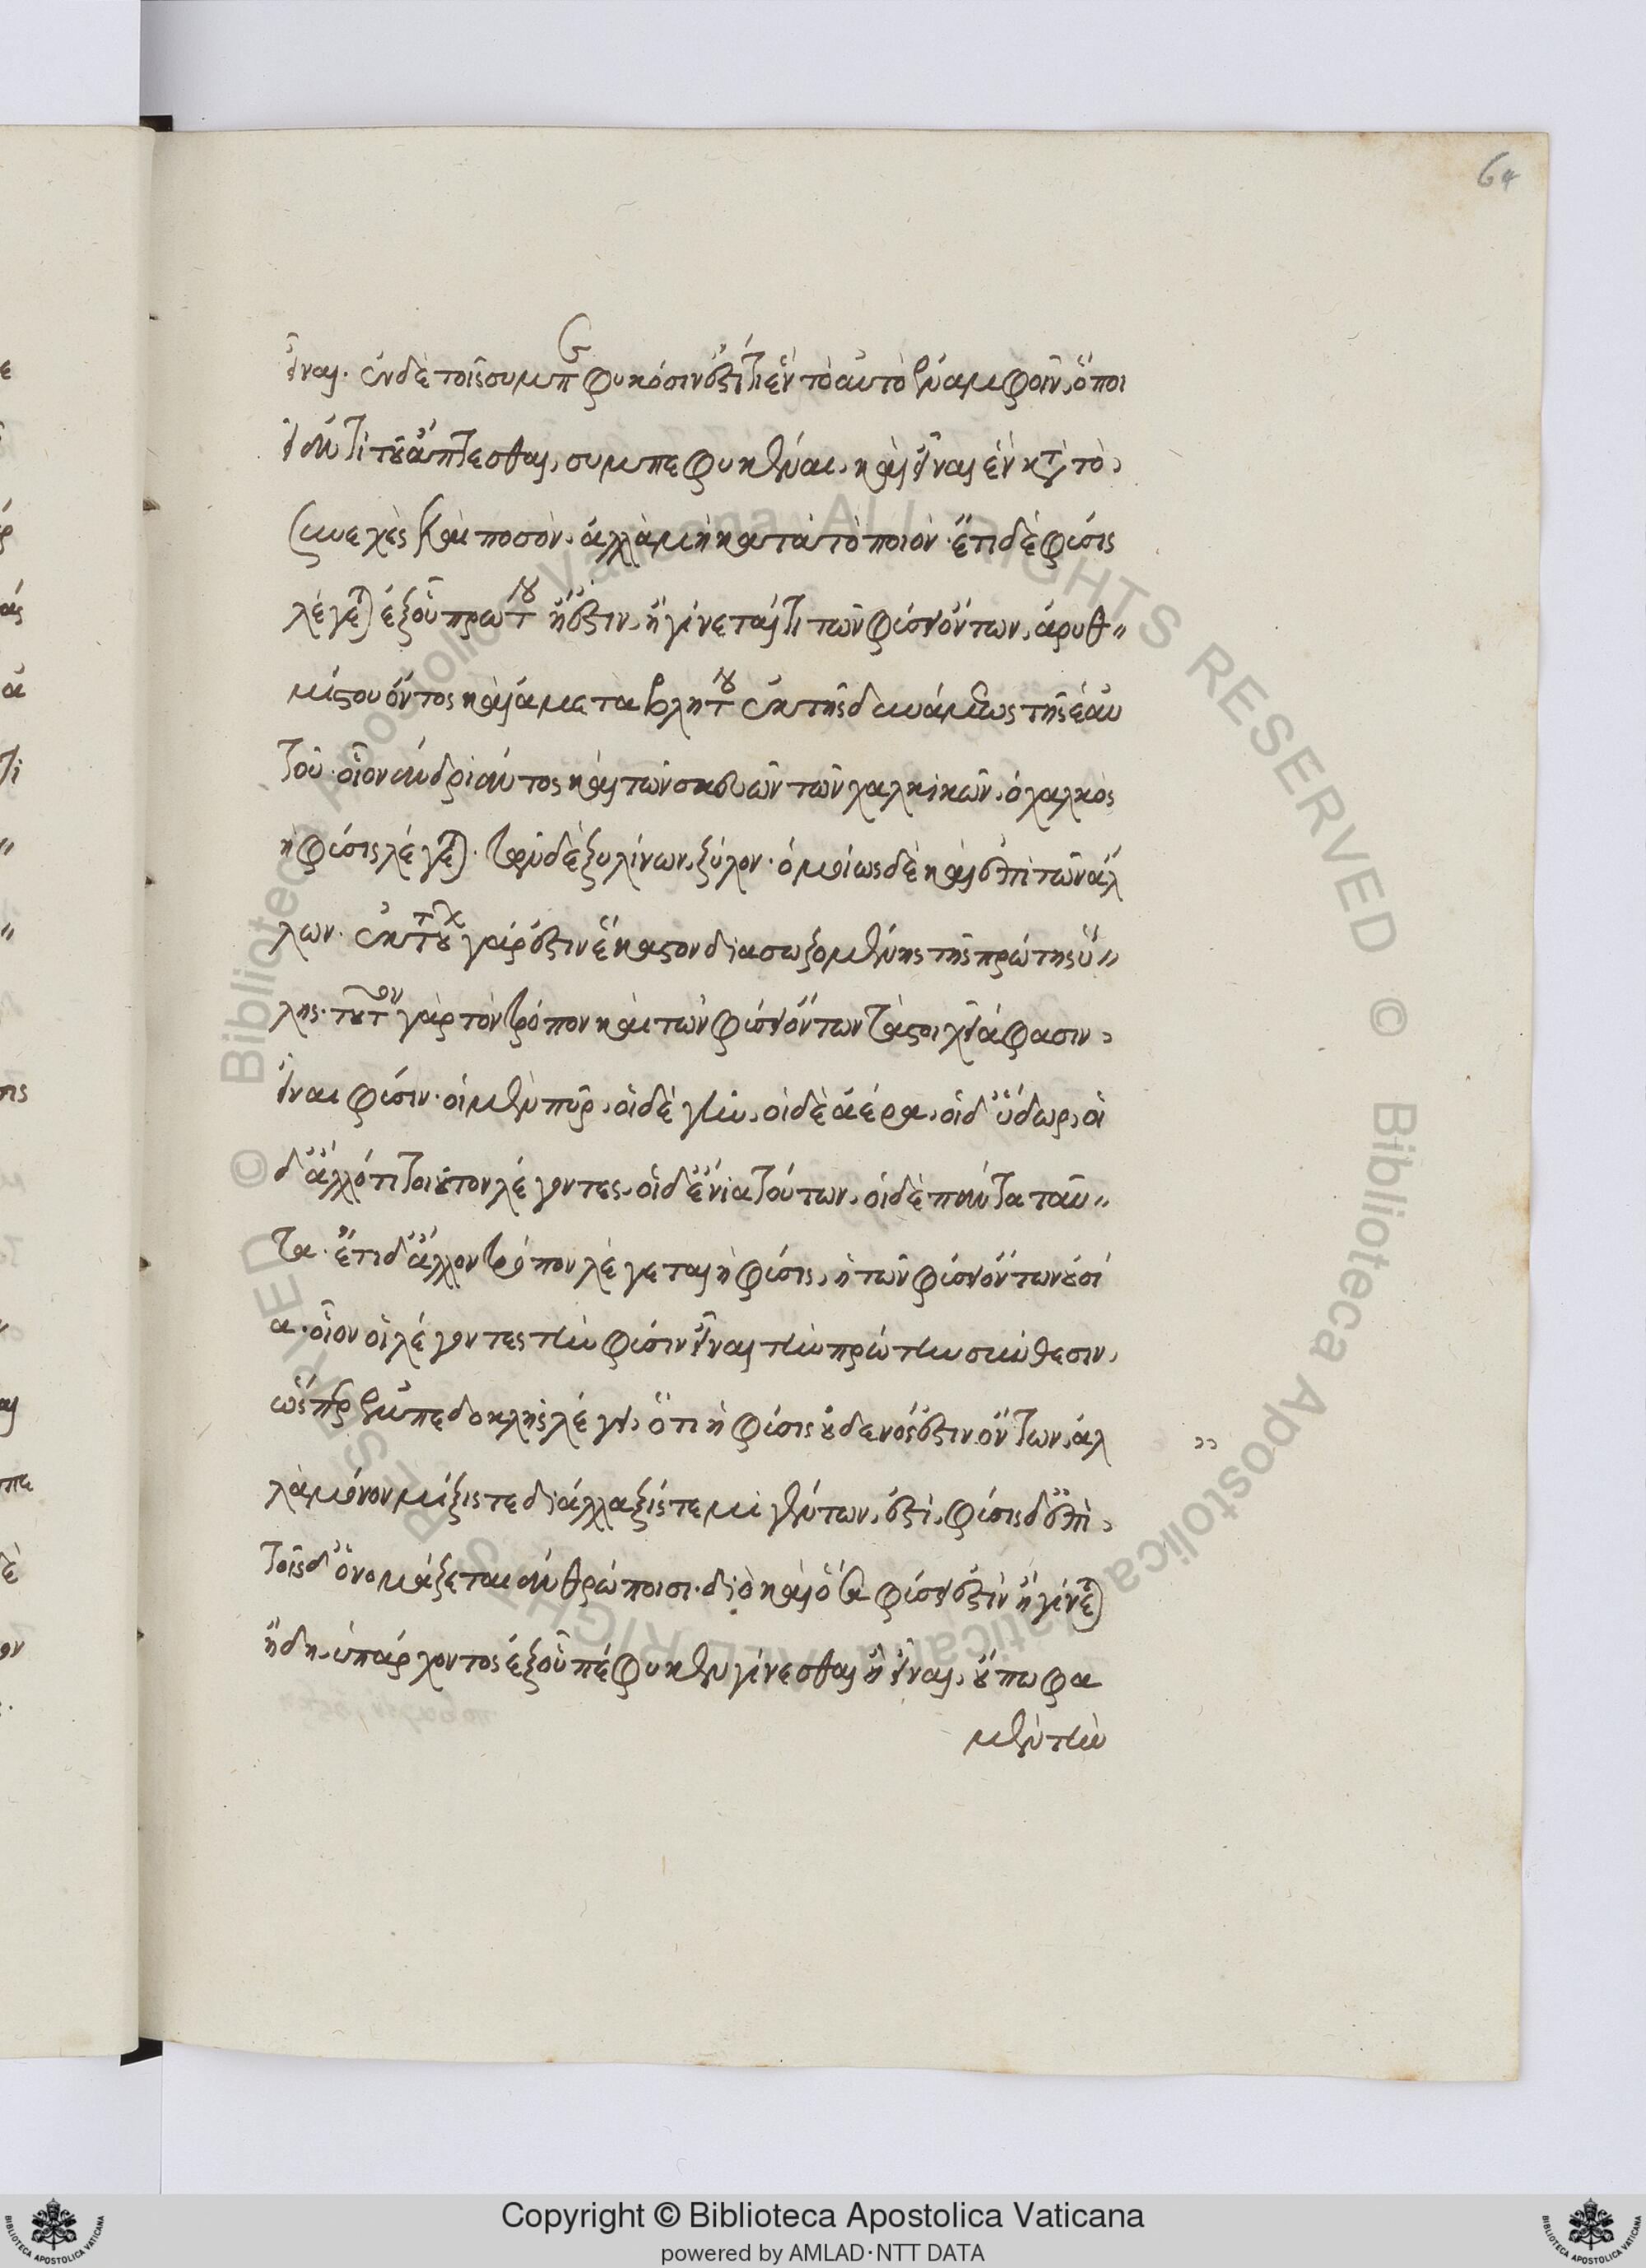 64
εἶναι. ἐν δὲ τοῖς συμπεφυκόσιν ἐστί τι ἓν τὸ αὐτὸ ἐν ἀμφοῖν, ὃ ποι
εῖ ἀντὶ τοῦ ἅπτεσθαι, συμπεφυκέναι, καὶ εἶναι ἓν κατὰ τὸ
συνεχὲς καὶ ποσόν, ἀλλὰ μὴ κατὰ τὸ ποιόν. ἔτι δὲ φύσις
λέγεται ἐξ οὗ πρώτου ἢ ἔστιν, ἢ γίνεταί τι τῶν φύσει ὄντων, ἀρυθ
μίστου ὄντος καὶ ἀμεταβλήτου ἐκ τῆς δυνάμεως τῆς ἑαυ
τοῦ. οἷον ἀνδριάντος καὶ τῶν σκευῶν τῶν χαλκικῶν, ὁ χαλκὸς
ἡ φύσις λέγεται. τῶν δὲ ξυλίνων, ξύλον. ὁμοίως δὲ καὶ ἐπὶ τῶν ἄλ
λων. ἐκ τούτων γάρ ἐστιν ἕκαστον διασωζομένης τῆς πρώτης ὕ
λης. τοῦτον γὰρ τὸν τρόπον καὶ τῶν φύσει ὄντων τὰ στοιχεῖά φασιν
εἶναι φύσιν. οἱ μὲν πῦρ, οἱ δὲ γῆν, οἱ δὲ ἀέρα, οἱ δ' ὕδωρ, οἱ
δ' ἄλλό τι τοιοῦτον λέγοντες, οἱ δ' ἔνια τούτων, οἱ δὲ πάντα ταῦ
τα. ἔτι δ' ἄλλον τρόπον λέγεται ἡ φύσις, ἡ τῶν φύσει ὄντων οὐσί
α. οἷον οἱ λέγοντες τὴν φύσιν εἶναι τὴν πρώτην σύνθεσιν,
ὥσπερ ἐμπεδοκλῆς λέγει, ὅτι ἡ φύσις οὐδενός ἐστιν ὄντων, ἀλ
λὰ μόνον μίξις τε διάλλαξίς τε μιγέντων, ἐστί, φύσις δ' ἐπὶ
τοῖς δ' ὀνομάζεται ἀνθρώποισι. διὸ καὶ ὅσα φύσει ἐστὶν ἢ γίνεται
ἤδη ὑπάρχοντος ἐξ οὗ πέφυκεν γίνεσθαι ἢ εἶναι, οὔπω φα
μὲν τὴν
Copyright © Biblioteca Apostolica Vaticana
powered by AMLAD·NTT DATA